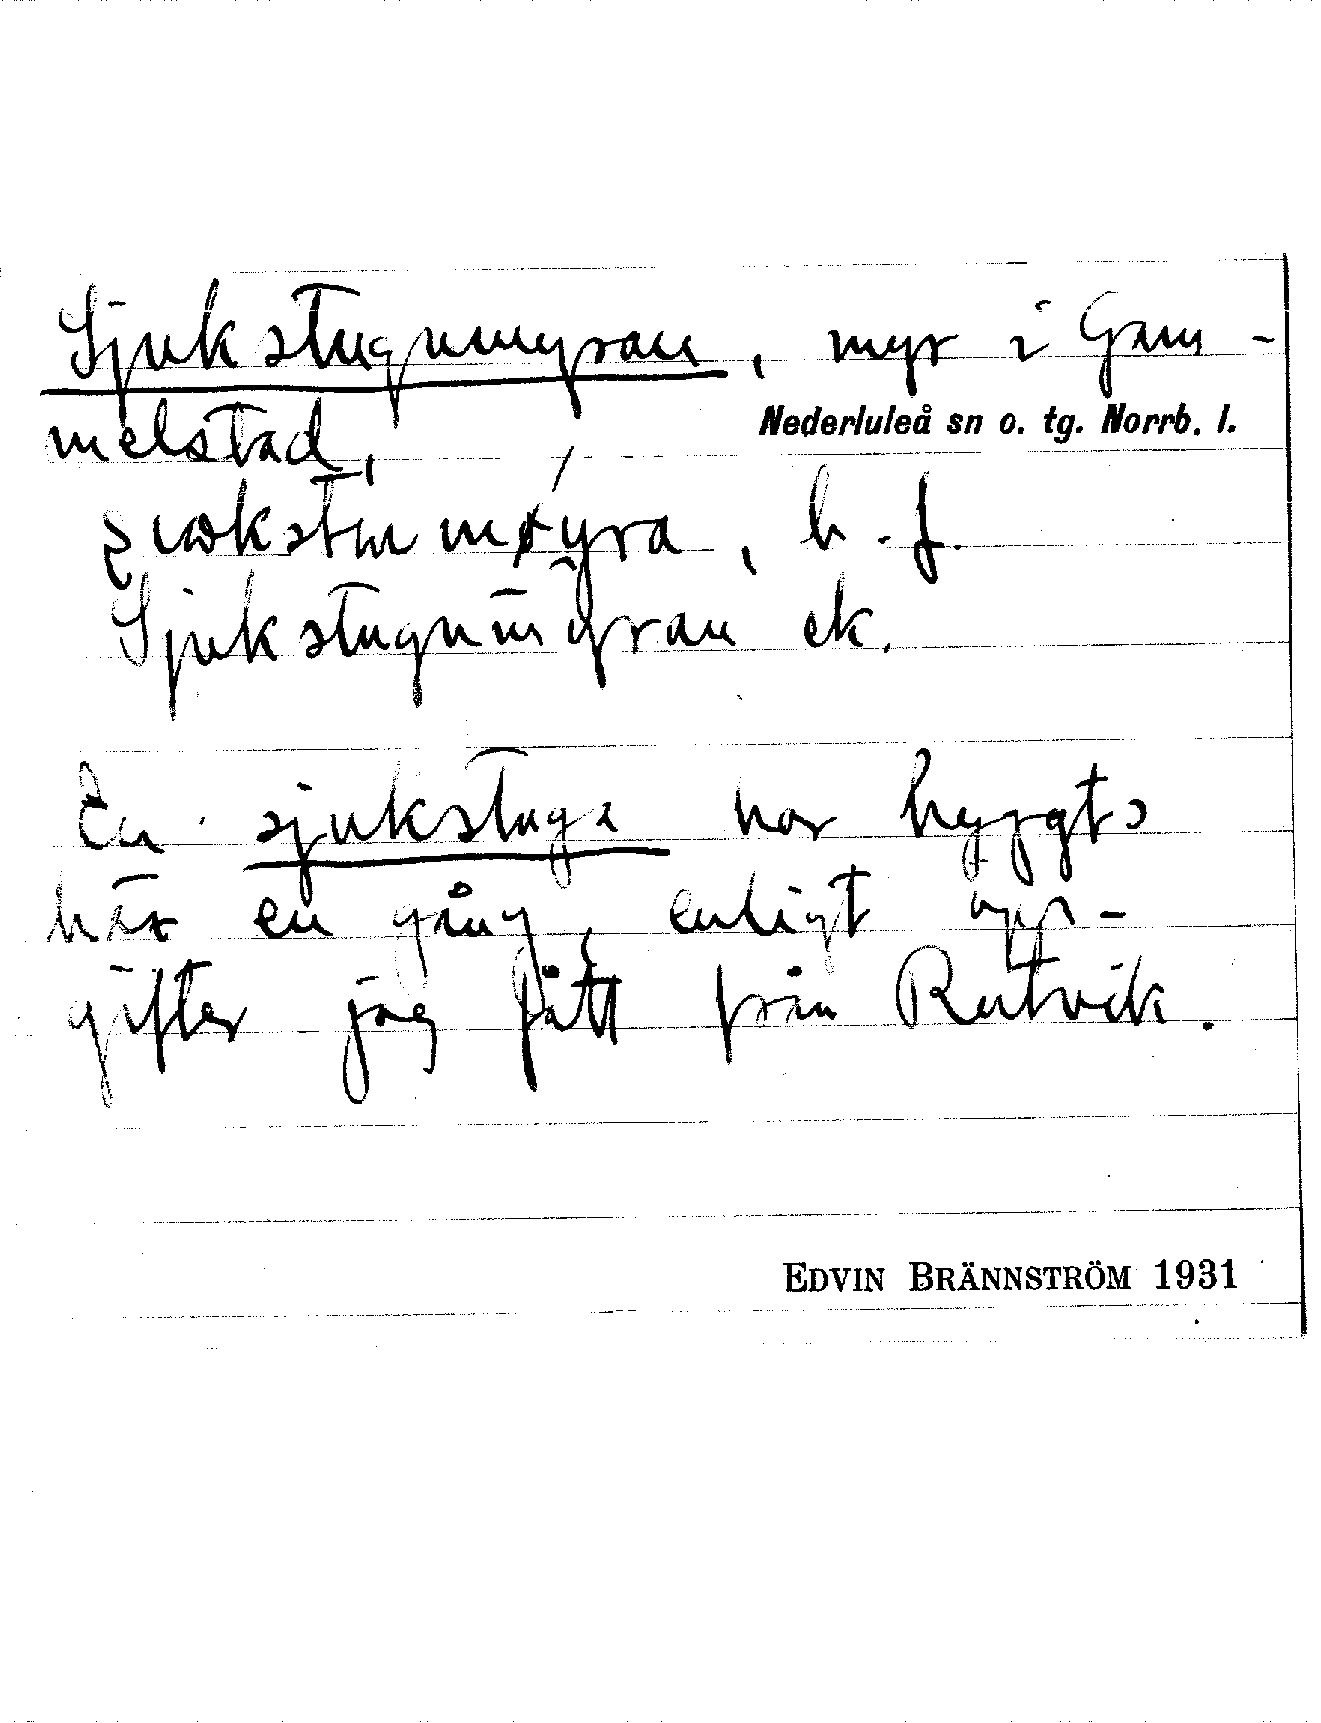 Sjukstugumyran, myr i Gam-
Nederluleå sn o. tg. Norrb. l.
melstad,
b. f.
Sjukstugumyran ek.
En sjukstuga har byggts
här en gång, enligt upp-
gifter jag fått från Rutvik.
EDVIN BRÄNNSTRÖM 1931